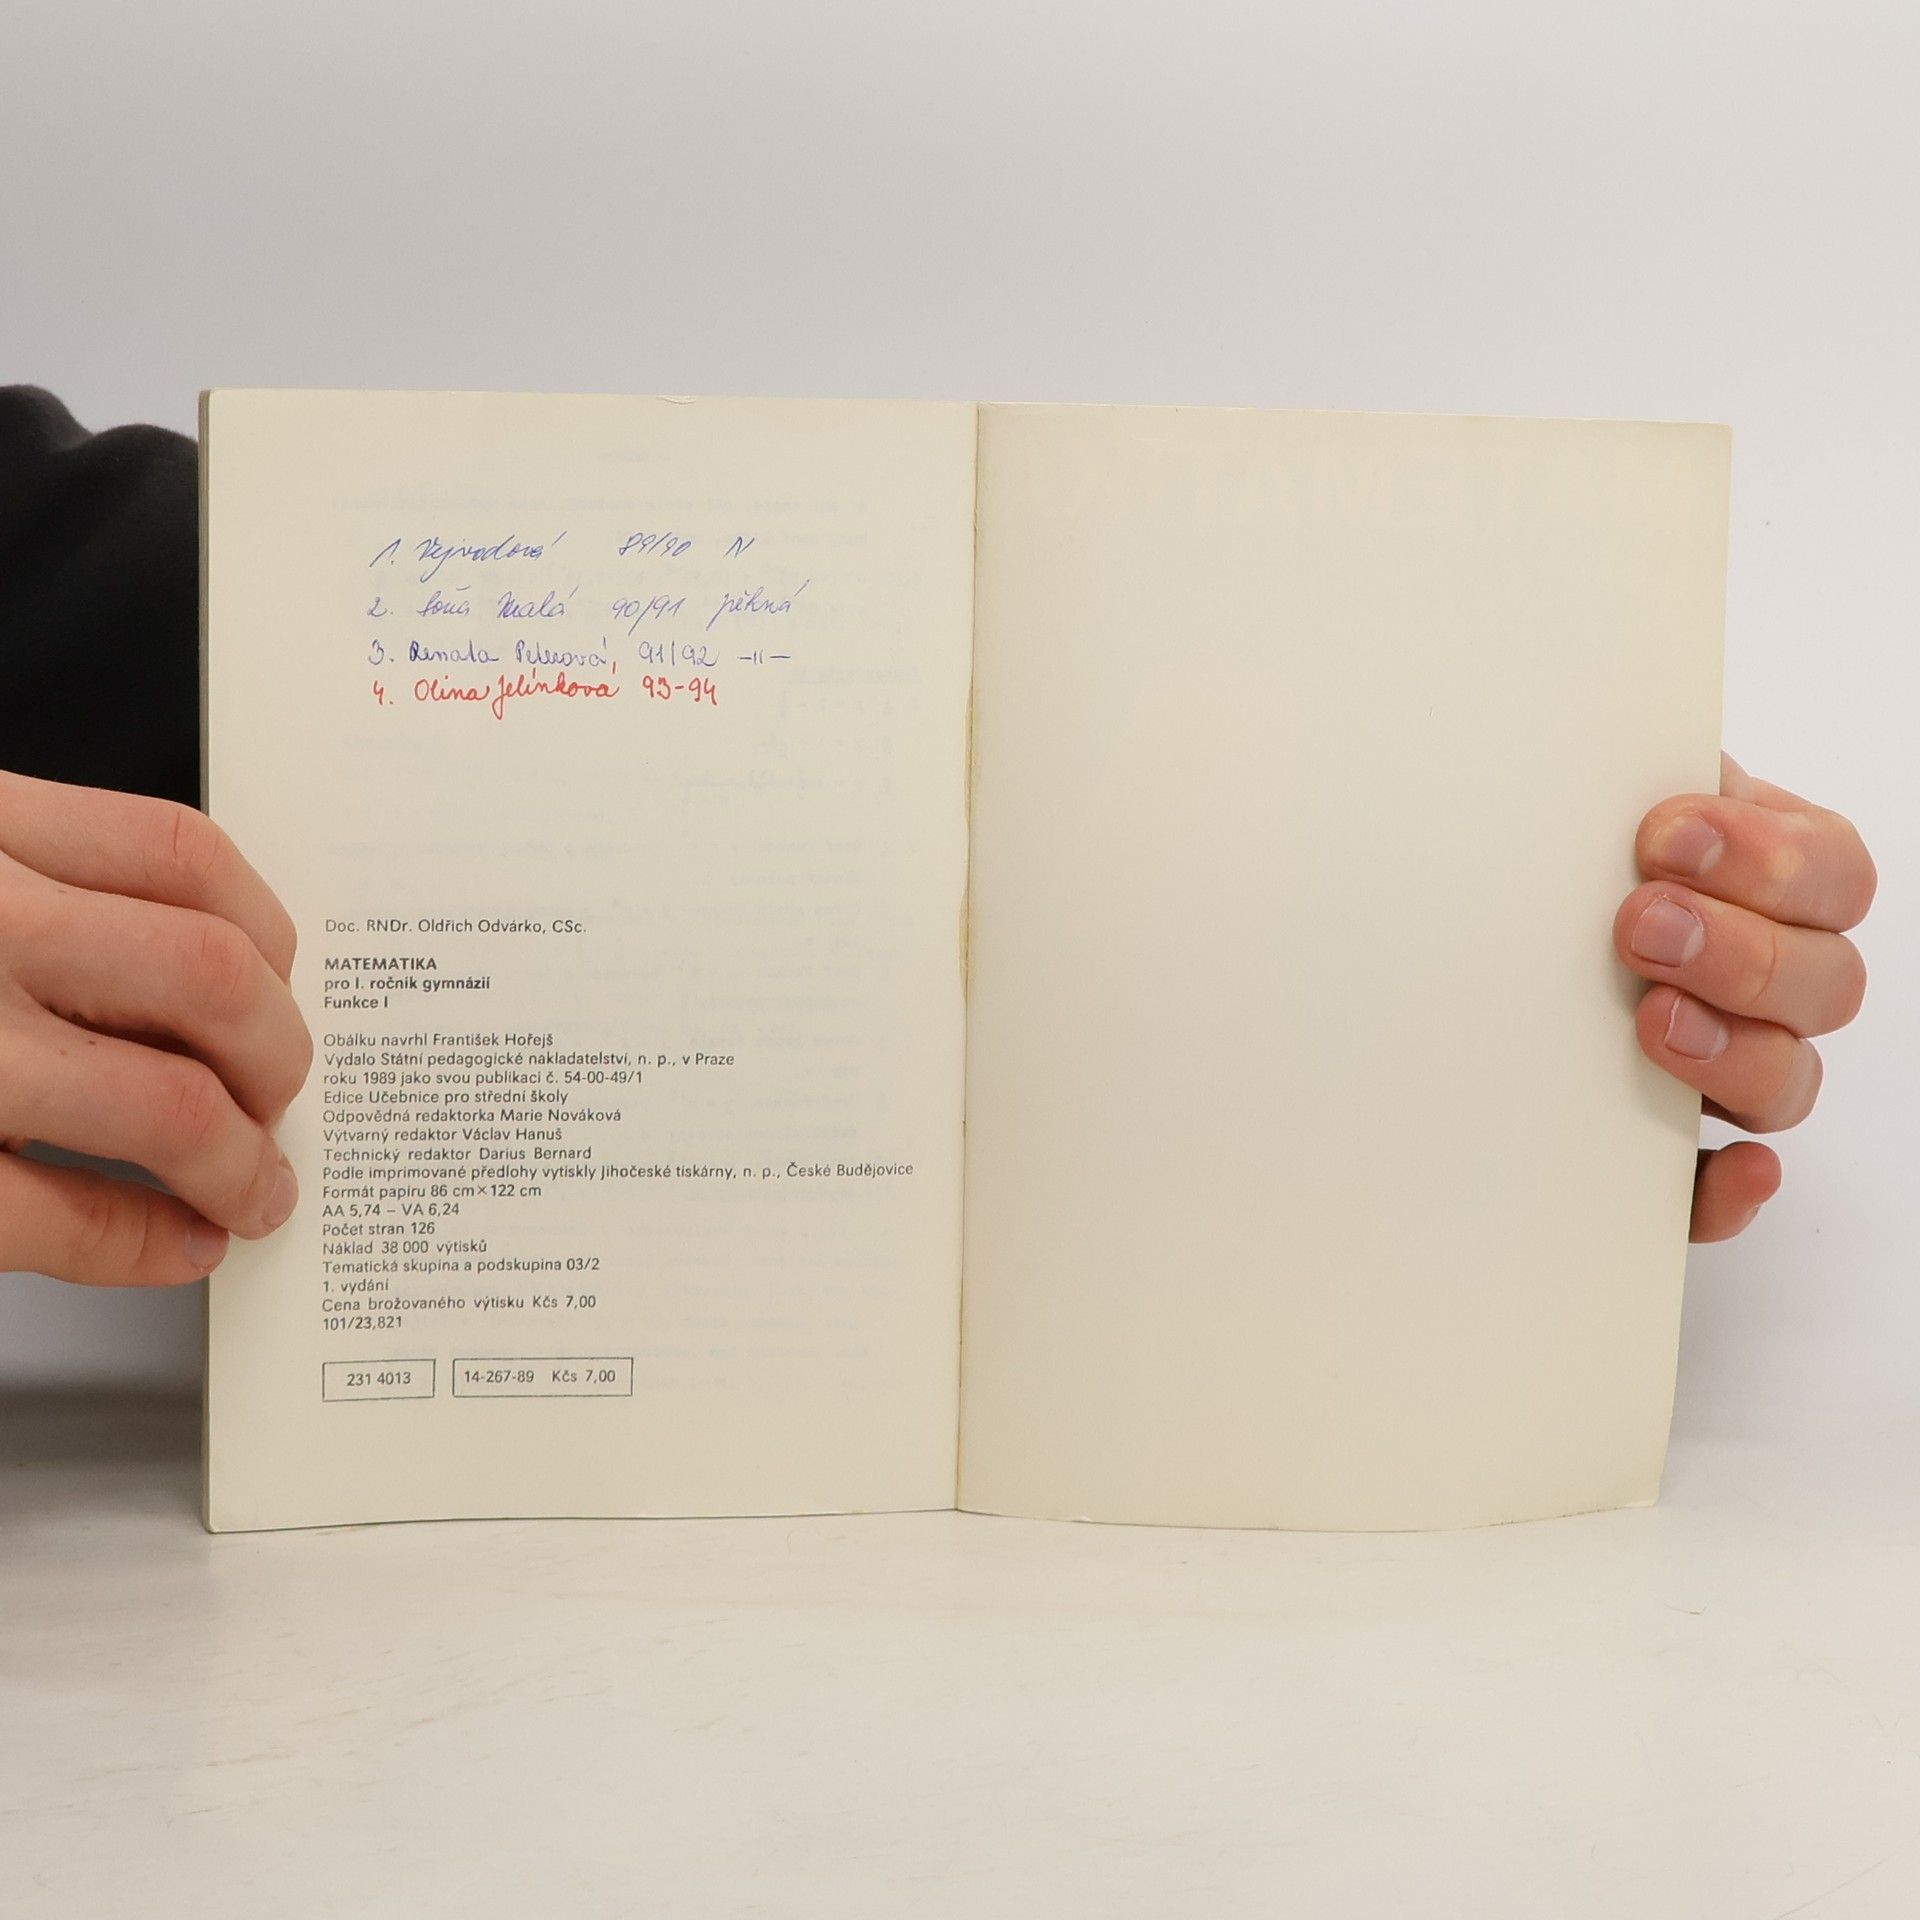 1. Vejvodová 89/90 N
2. Soňa Malá 90/91 pěkná
3. Renata Peterová, 91/92 –||–
4. Olina Jelínková 93-94
Doc. RNDr. Oldřich Odvárko, CSc.
MATEMATIKA
pro I. ročník gymnázií
Funkce I
Obálku navrhl František Hořejš
Vydalo Státní pedagogické nakladatelství, n. p., v Praze
roku 1989 jako svou publikaci č. 54-00-49/1
Edice Učebnice pro střední školy
Odpovědná redaktorka Marie Nováková
Výtvarný redaktor Václav Hanuš
Technický redaktor Darius Bernard
Podle imprimované předlohy vytiskly Jihočeské tiskárny, n. p., České Budějovice
Formát papíru 86 cm×122 cm
AA 5,74 – VA 6,24
Počet stran 126
Náklad 38 000 výtisků
Tematická skupina a podskupina 03/2
1. vydání
Cena brožovaného výtisku Kčs 7,00
101/23,821
231 4013 14-267-89 Kčs 7,00